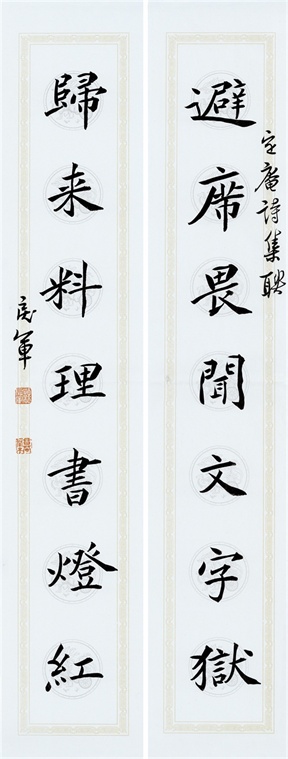 避席畏聞文字獄
定庵詩集聯
歸来料理書燈紅